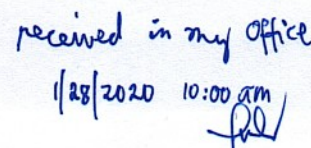 received in my office
1/28/2020 10:00 am